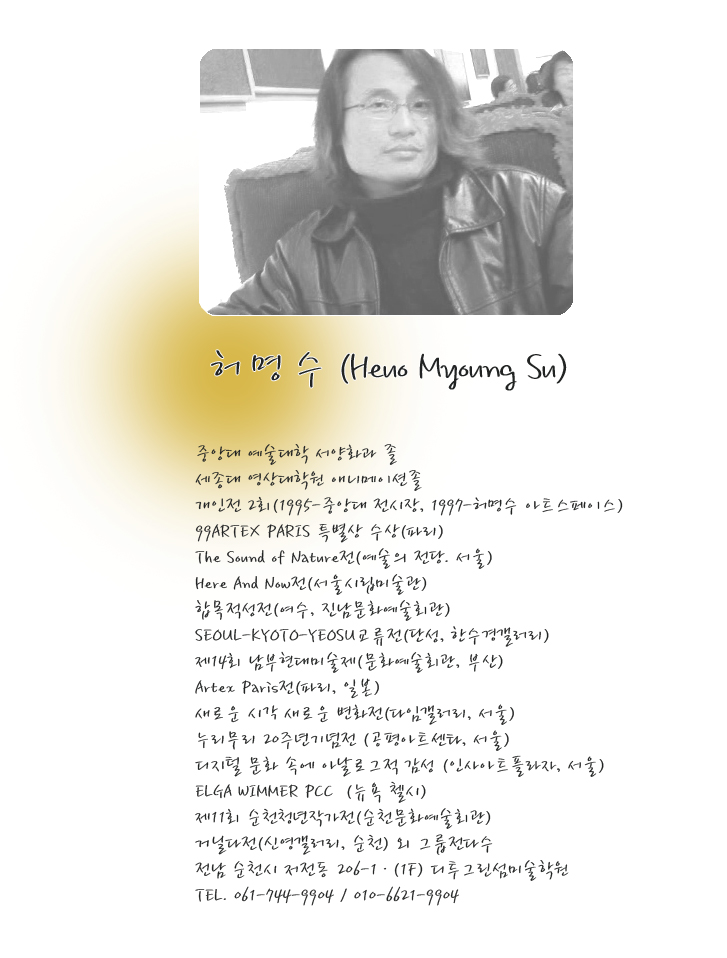 허명수 (Heuo Myoung Su)
중앙대 예술대학 서양화과 졸
세종대 영상대학원 애니메이션졸
개인전 2회(1995-중앙대 전시장, 1997-허명수 아트스페이스)
99ARTEX PARIS 특별상 수상(파리)
The Sound of Nature전(예술의 전당. 서울)
Here And Now전(서울시립미술관)
합목적성전(여수, 진남문화예술회관)
SEOUL-KYOTO-YEOSU교류전(단성, 한수경갤러리)
제14회 남부현대미술제(문화예술회관, 부산)
Artex Paris전(파리, 일본)
새로운 시각 새로운 변화전(타임갤러리, 서울)
누리무리 20주년기념전 (공평아트센타, 서울)
디지털 문화 속에 아날로그적 감성 (인사아트플라자, 서울)
ELGA WIMMER PCC (뉴욕 첼시)
제11회 순천청년작가전(순천문화예술회관)
거닐다전(신영갤러리, 순천) 외 그룹전다수
전남 순천시 저전동 206-1 · (1F) 디투그린섬미술학원
TEL. 061-744-9904 / 010-6621-9904